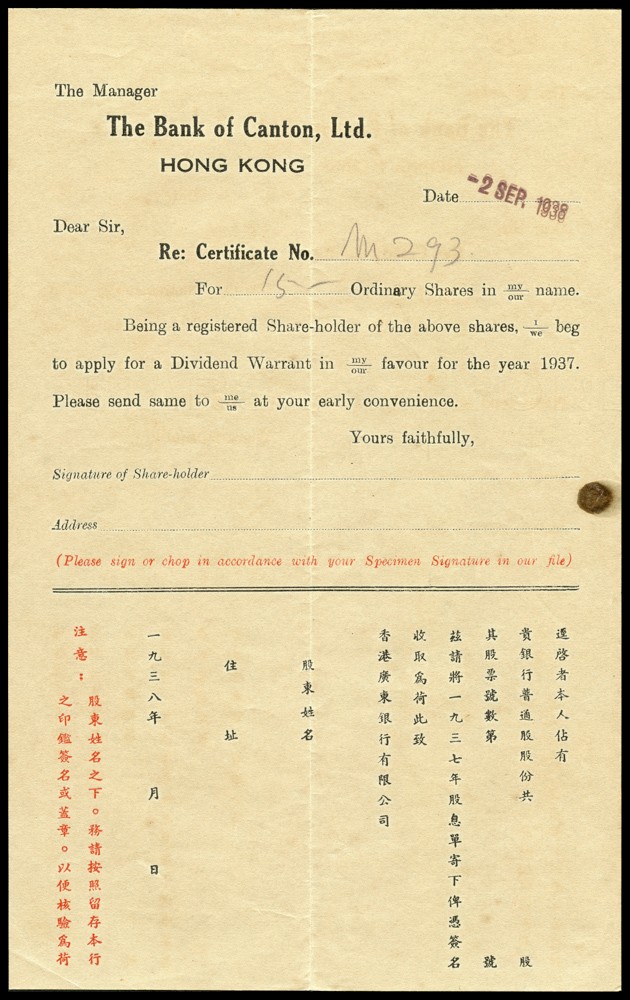 The Manager
The Bank of Canton, Ltd.
HONG KONG
Date -2 SEP. 1938
Dear Sir,
Re: Certificate No. M 293
For 15 Ordinary Shares in my/our name.
Being a registered Share-holder of the above shares, I/we beg
to apply for a Dividend Warrant in my/our favour for the year 1937.
Please send same to me/us at your early convenience.
Yours faithfully,
Signature of Share-holder
Address
(Please sign or chop in accordance with your Specimen Signature in our file)
逕啓者本人佔有
貴銀行普通股股份共 股
其股票號數第 號
茲請將一九三七年股息單寄下俾憑簽名
收取爲荷此致
香港廣東銀行有限公司
股東姓名
住址
一九三八年 月 日
注意：股東姓名之下。務請按照留存本行
之印鑑簽名或蓋章。以便核驗爲荷